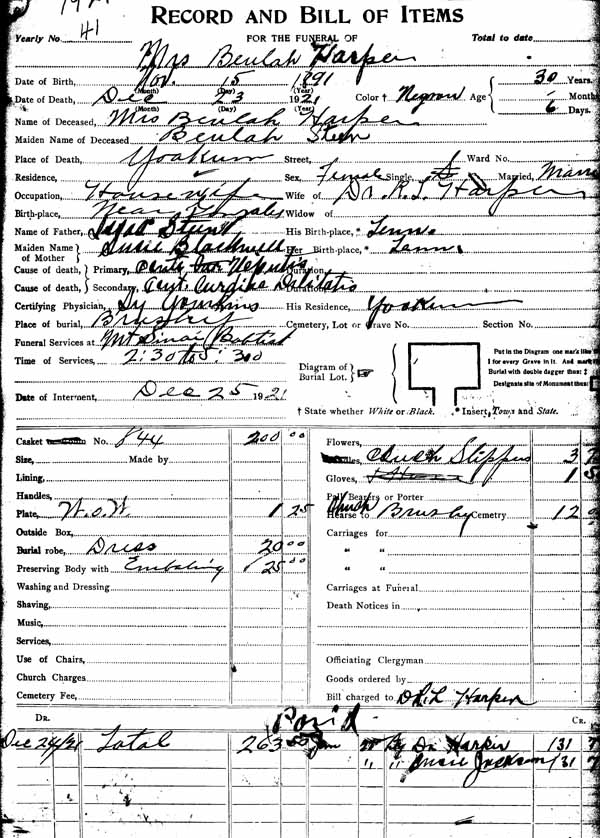 RECORD AND BILL OF ITEMS
Yearly No. 41 FOR THE FUNERAL OF Total to date
Mrs Beulah Harper
Date of Birth, Nov. 15 1891
(Month) (Day) (Year) 30 Years.
Date of Death, Dec 23 1921 Color † Age Months
(Month) (Day) (Year) 6 Days.
Name of Deceased, Mrs Beulah Harper
Maiden Name of Deceased Beulah
Place of Death, Yoakum Street, Ward No.
Residence, Sex, Female Single, Married,
Occupation, Housewife Wife of Dr. R.L. Harper
Birth-place, Near Gonzales Widow of
Name of Father, His Birth-place, * Tenn.
Maiden Name of Mother Susie Blackwell Her Birth-place, * Tenn.
Cause of death, Primary, Duration,
Cause of death, Secondary, Duration,
Certifying Physician, His Residence, Yoakum
Place of burial, Cemetery, Lot or Grave No. Section No.
Funeral Services at Mt Sinai Baptist
Time of Services, 2:30 to 3:30
Diagram of Burial Lot.
Put in the Diagram one mark like
1 for every Grave in it. And mark
Burial with double dagger thus: ‡
Designate site of Monument thus:
Date of Interment, Dec 25 1921 † State whether White or Black. * Insert, Town and State.
Casket No. 844 200 00 Flowers,
Size, Made by Slippers 3
Lining, Gloves, 1
Handles, Pall Bearers or Porter
Plate, W.O.W. 1 25 Hearse to Church Brushy Cemetry 12
Outside Box, Carriages for
Burial robe, Dress 20 00 " "
Preserving Body with Embalming 25 00 " "
Washing and Dressing Carriages at Funeral
Shaving, Death Notices in
Music,
Services,
Use of Chairs, Officiating Clergyman
Church Charges Goods ordered by
Cemetery Fee, Bill charged to Dr. L Harper
DR. Paid CR.
Dec 24/21 Total 263 By Dr Harper 131
" " Susie Jackson 131